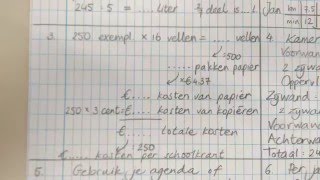 245 : 5 = ..... liter
deel is ...l
Jan
km 17.5
min 12
3. 250 exempl × 16 vellen = ..... vellen
: 500
..... pakken papier
× € 4.37
€ ..... kosten van papier
250 × 3 cent = € ..... kosten van kopiëren
€ ..... totale kosten
: 250
€ ..... kosten per schoolkrant
5. Gebruik je agenda of
4.
Kamer
Voorwan
2 zywa
Opperv
Zywand =
2 zywand
Voorwand
Achterwa
Totaal = 24
6. Per ja